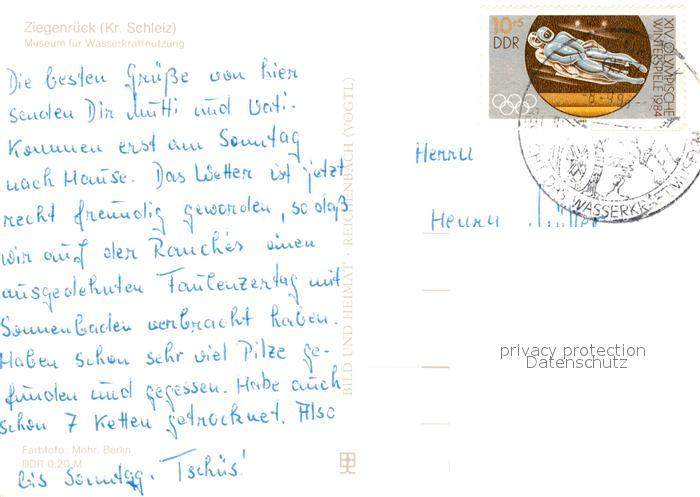 Ziegenrück (Kr. Schleiz)
Museum für Wasserkraftnutzung
Die besten Grüße von hier
senden Dir Mutti und Vati.
Kommen erst am Sonntag
nach Hause. Das Wetter ist jetzt
recht freundig geworden, so daß
wir auf der Ranch einen
ausgedehnten Faulenzertag mit
Sonnenbaden verbracht haben.
Haben schon sehr viel Pilze ge-
funden und gegessen. Habe auch
schon 7 Ketten getrocknet. Also
bis Sonntag. Tschüs!
Farbfoto: Mohr, Berlin
DDR 0,20 M
BILD UND HEIMAT · REICHENBACH (VOGTL)
10+5
DDR
XIV. OLYMPISCHE
WINTERSPIELE 1984
WASSERKRAFTMUSEUM
Herrn
Henry
privacy protection
Datenschutz